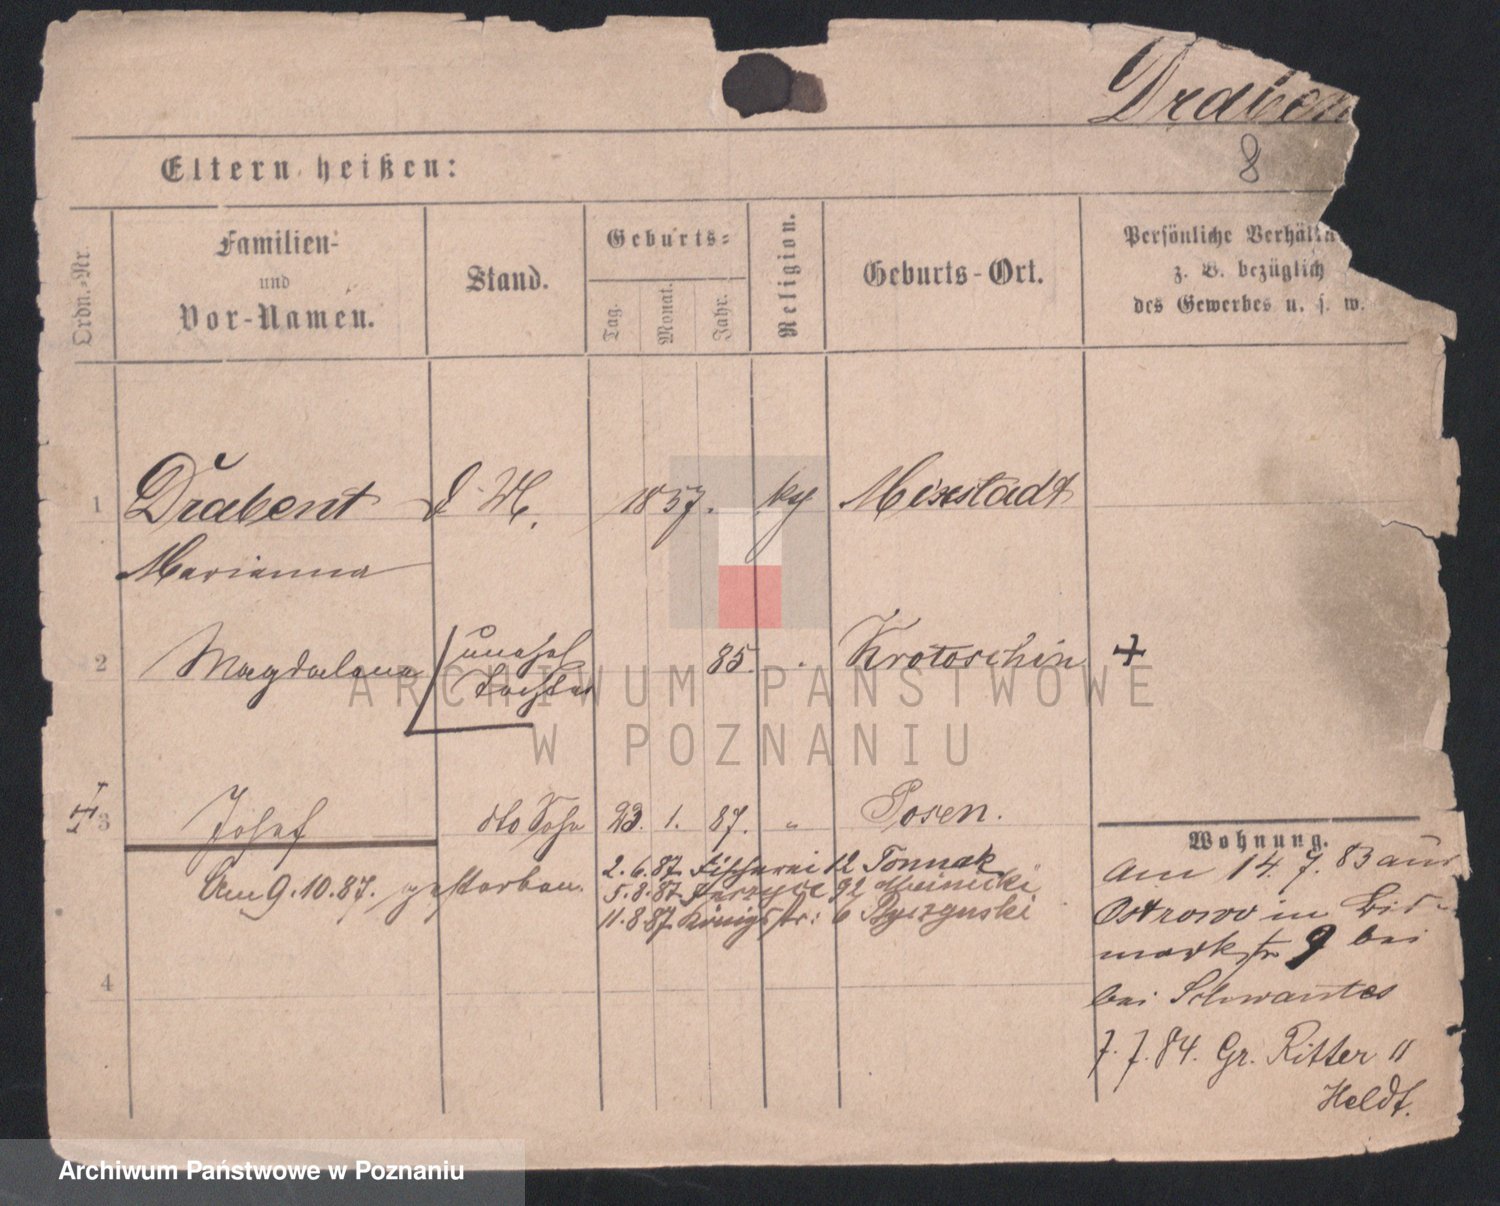 Draben
8
Eltern heißen:
Ordn.-Nr.
Familien-
und
Vor-Namen.
Stand.
Geburts-
Tag.
Monat.
Jahr.
Religion.
Geburts-Ort.
Persönliche Verhält
z. B. bezüglich
des Gewerbes u. s. w.
1 Drabent d. M. 1857. Mixstadt
Marianna
2 Magdalena unehel 85. Krotoschin +
Tochter
3 Josef dto Sohn 23. 1. 87. " Posen.
Am 9.10.87. gestorben.
2.6.87. Fischerei 12 Tonnak
5.8.87 92
11.8.87 Königstr: 6
4
Wohnung.
Am 14.7.83 aus
Ostrowo in Bis-
markstr 9 bei
bei Schwantes
7.7.84. Gr. Ritter 11
Heldt.
ARCHIWUM PAŃSTWOWE
W POZNANIU
Archiwum Państwowe w Poznaniu